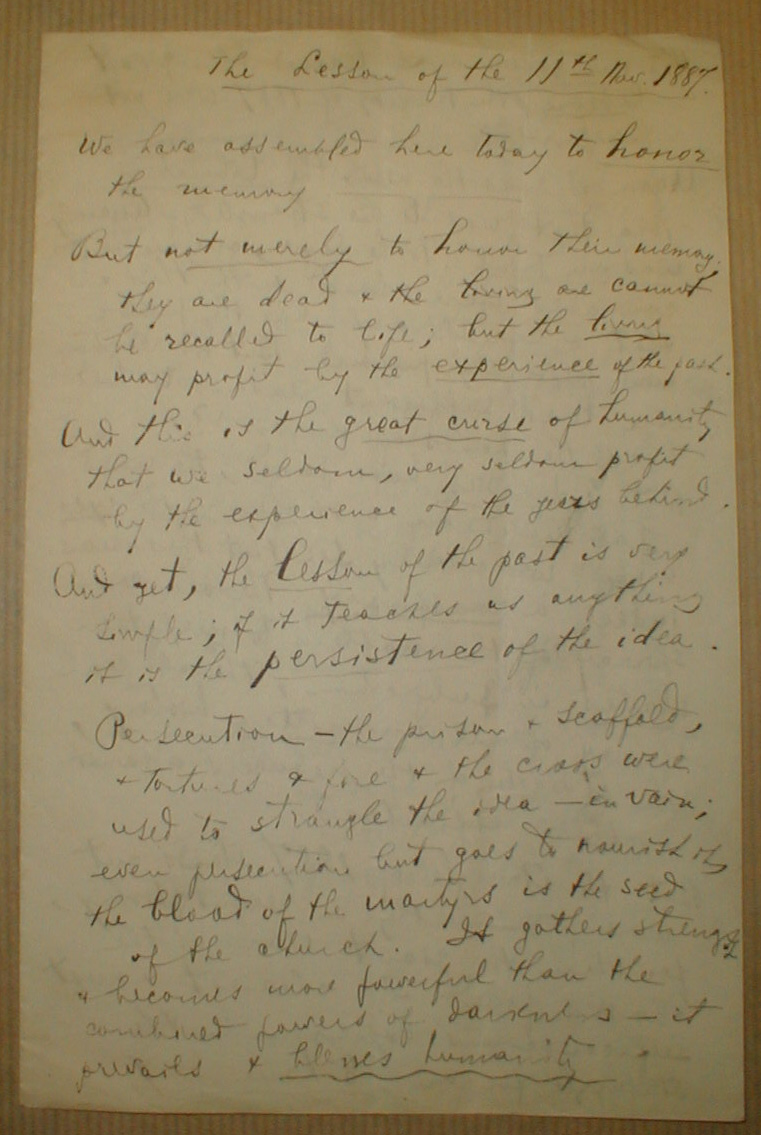 The Lesson of the 11th Nov. 1887.
We have assembled here today to honor
the memory
But not merely to honor their memory.
they are dead & the living are cannot
be recalled to life; but the living
may profit by the experience of the past.
And this is the great curse of humanity
that we seldom, very seldom profit
by the experience of the years behind.
And yet, the lesson of the past is very
simple; if it teaches us anything
it is the persistence of the idea.
Persecution – the prison & scaffold,
& tortures & fire & the cross were
used to strangle the idea – in vain;
even persecution but goes to nourish it,
the blood of the martyrs is the seed
of the church. It gathers strength
& becomes more powerful than the
combined powers of darkness – it
prevails & blesses humanity